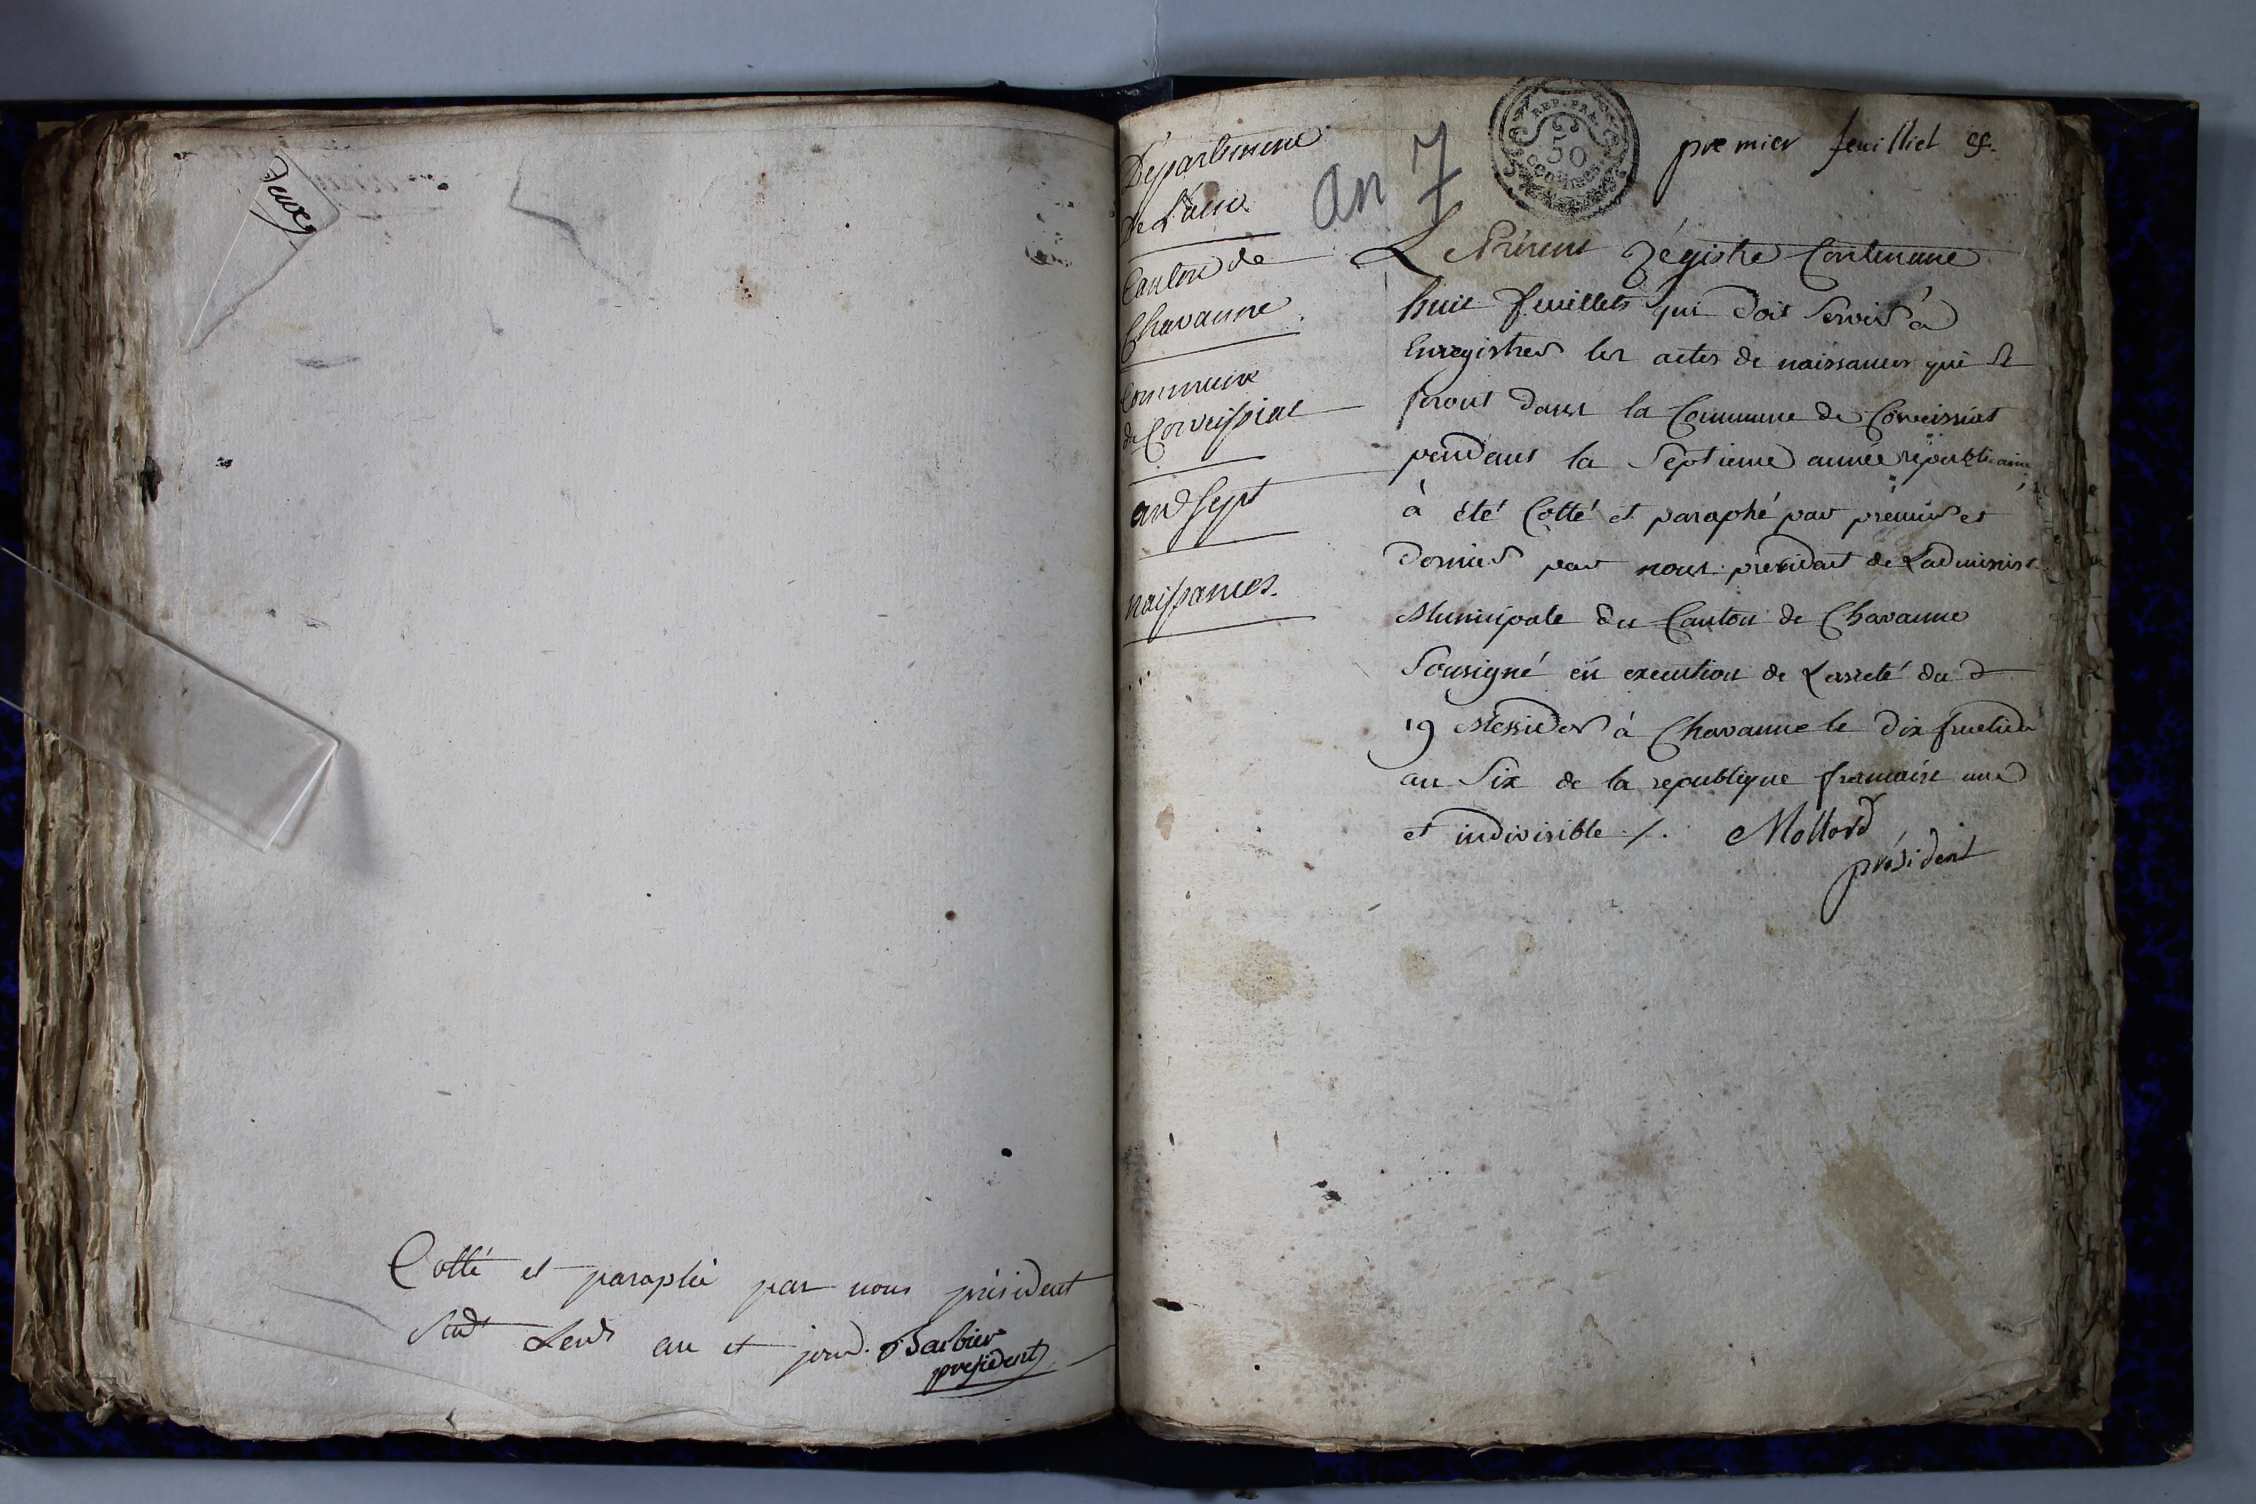 Deux
Cotté et paraphé par nous président
Les an et jour. Barbier
president
Département
De L'ain
Canton de
Chavanne
Commune
de Corveissiat
an Sept
naissances.
an 7
REP. FRA.
50
CENTIMES
premier feuillet
Le Présent régistre Contenant
huit feuillets qui doit Servir à
Enregistrer les actes de naissances qui se
feront dans la Commune de Corveissiat
pendant la Septieme année républicaine
à été Cotté et paraphé par prémier et
Dernier par nous président de L'administ
Municipale du Canton de Chavanne
Sousigné en execution de L'arreté du
19 Messidor à Chavanne le dix fructidor
an Six de la republique francaise une
et indivisible ./. Mollard
président